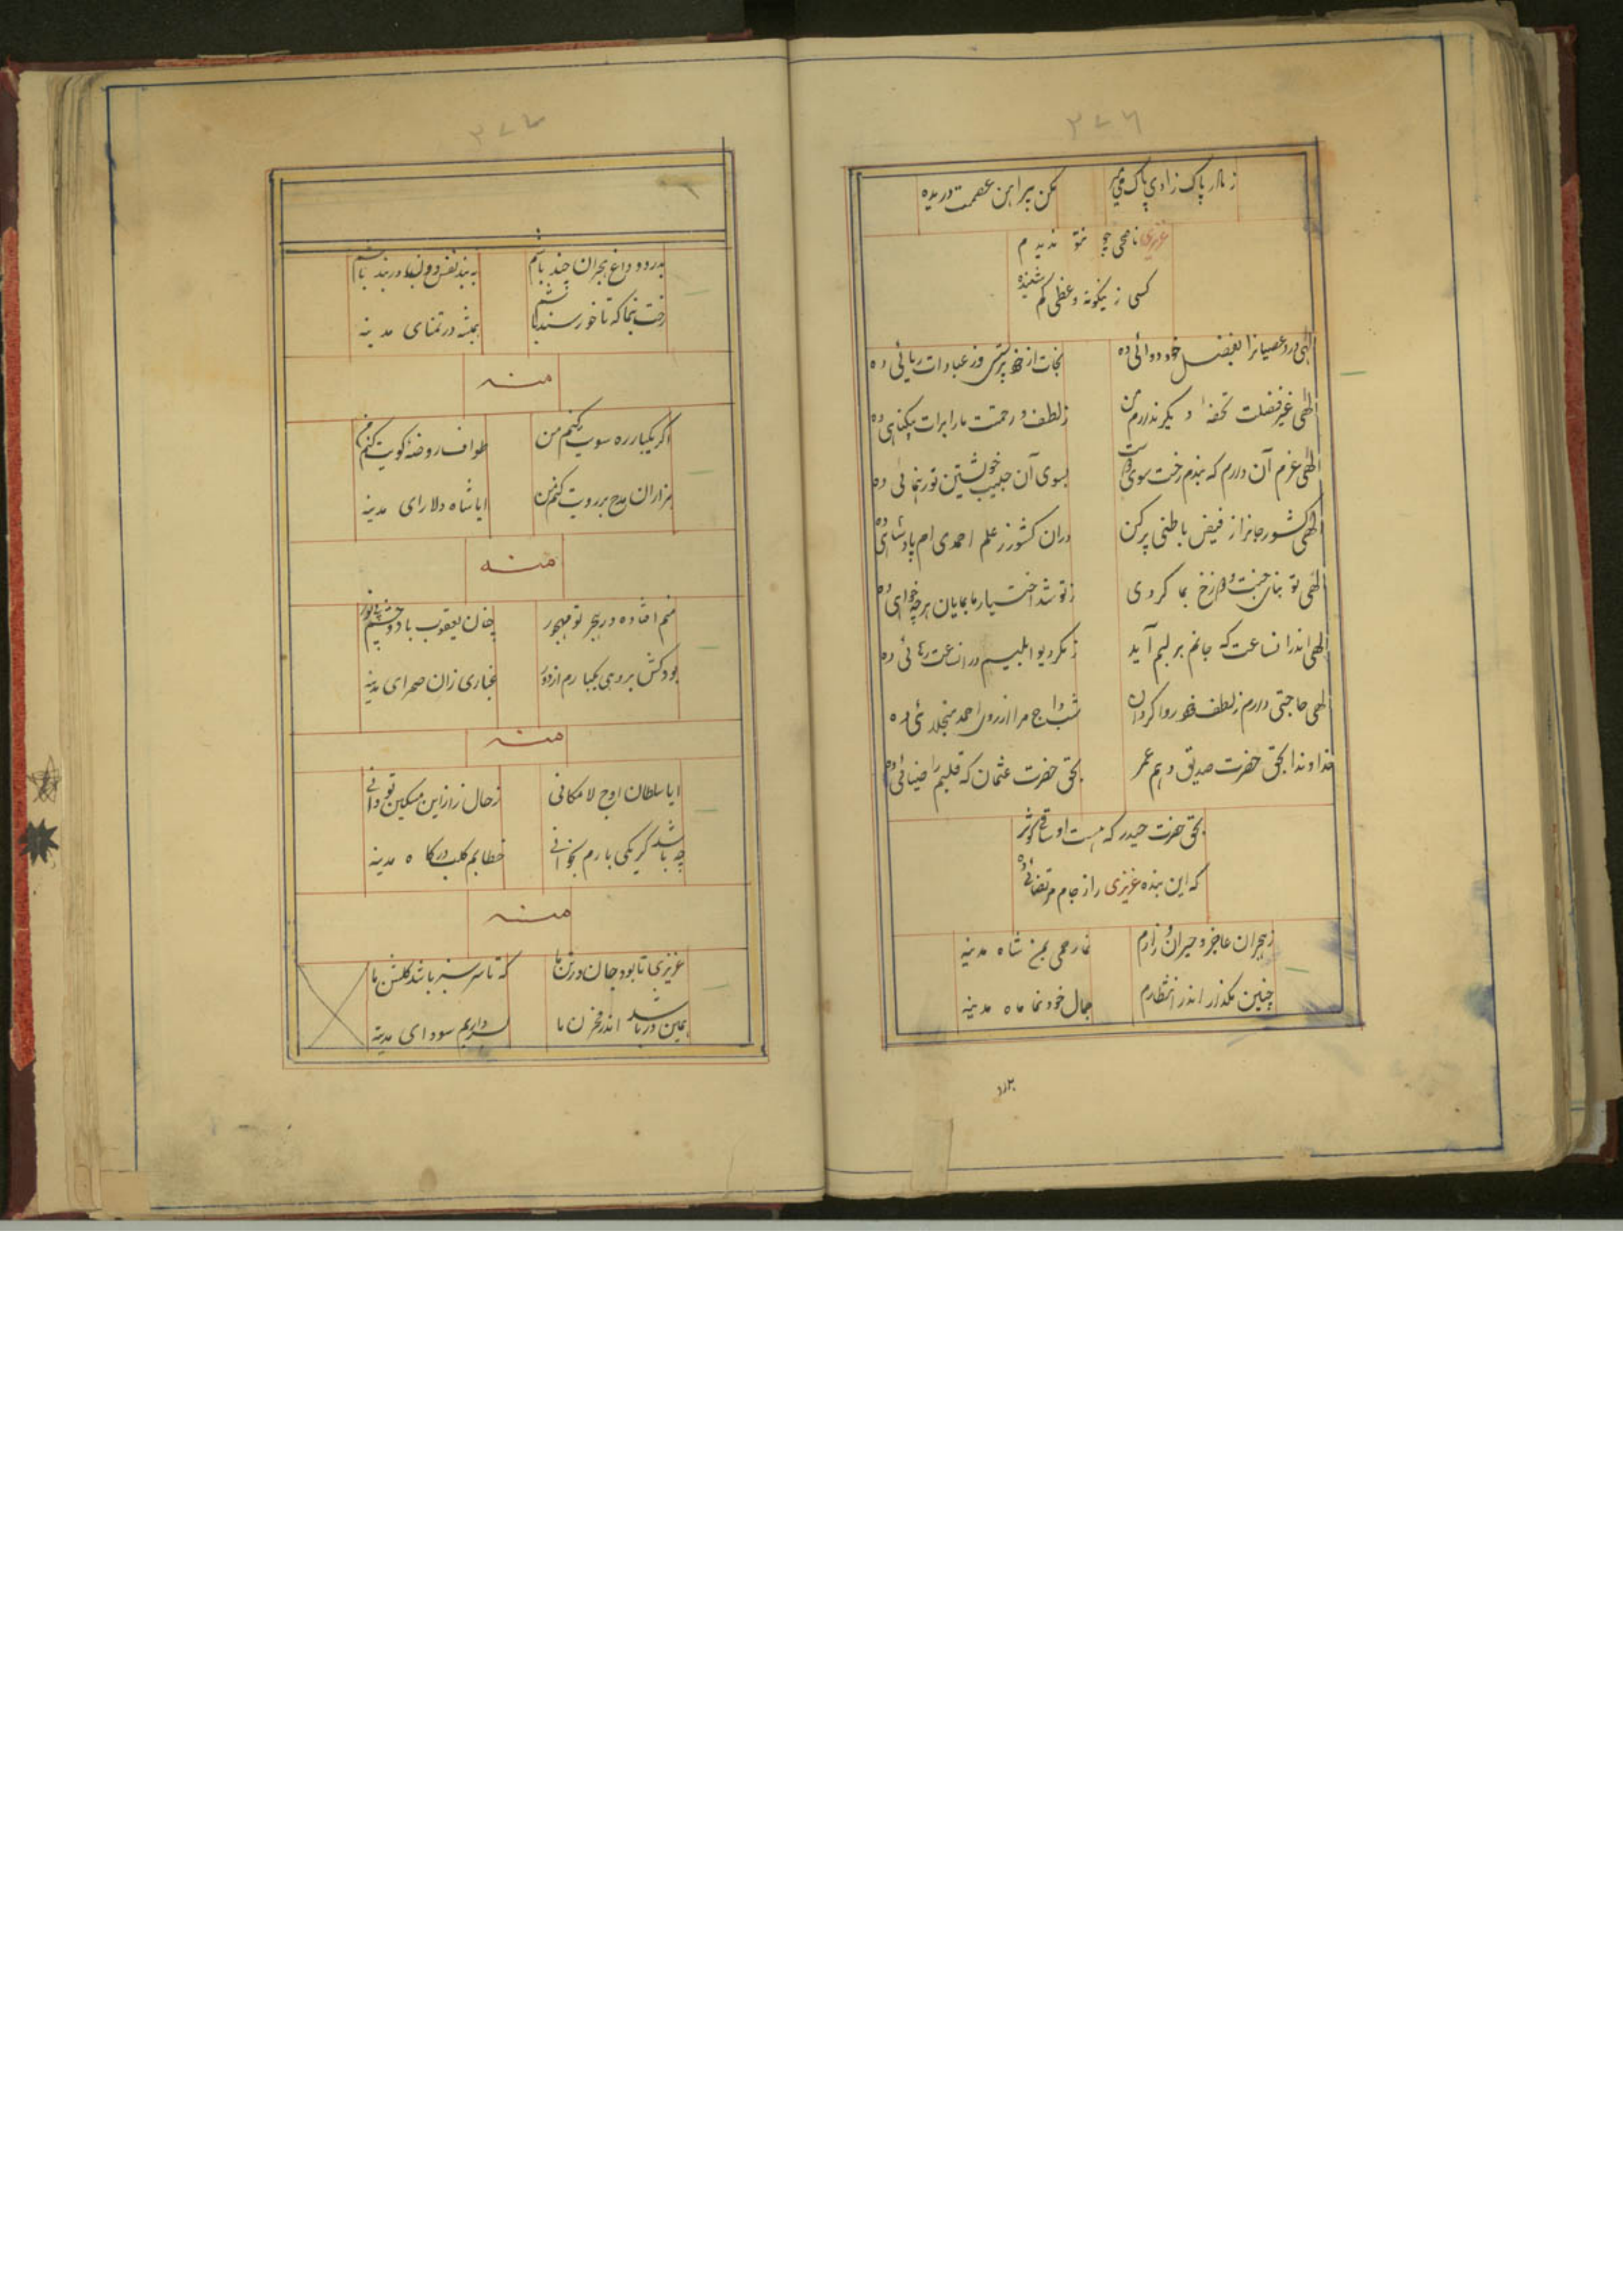 ۳۷۶
ز مادر پاک زادی پاک میر
مکن پیراهن عصمت دریده
عزیزی ناصحی چو تو ندیدم
کسی زینگونه وعظی کم شنیده
الهی درد عصیانرا بفضل خود دوائی ده
نجات از خود پرستی وز عبادات ریائی ده
الهی غیر فضلت تحفهٔ دیگر ندارم من
ز لطف و رحمتت ما را برات بیگناهی ده
الهی عزم آن دارم که بندم رخت سوی
بسوی آن حبیب خویشتن تو رهنمائی ده
الهی کشور جانرا ز فیض باطنی پر کن
دران کشور ز علم احمدی ام پادشاهی ده
الهی تو بنای جنت و دوزخ بما کردی
ز تو شد اختیار ما بمایان هر چه خواهی ده
الهی اندر انساعت که جانم بر لبم آید
ز مکر دیو ابلیسم در انساعت رهائی ده
الهی حاجتی دارم ز لطف خود روا گردان
شب داج مرا از روی احمد منجلائی ده
خداوندا بحق حضرت صدیق و هم عمر
بحق حضرت عثمان که قلبم را ضیائی ده
بحق حضرت حیدر که هست او ساقی کوثر
که این بنده عزیزی را ز جام مرتضائی ده
ز هجران عاجز و حیران و زارم
نما رحمی بمن شاه مدینه
چنین مگذار اندر انتظارم
جمال خود نما ماه مدینه
بدرد
۳۷۷
بدرد و داغ هجران چند باشم
به بند نفس دون پا در بند باشم
رخت بنما که تا خورسند باشم
همیشه در تمنای مدینه
منه
اگر یکبار ره سویت کنم من
طواف روضهٔ کویت کنم من
هزاران مدح بر رویت کنم من
ایا شاه دلارای مدینه
منه
منم افتاده در هجر تو مهجور
چنان یعقوب با دو چشم بی نور
بود کش بر وی یکبارم از دور
غباری زان صحرای مدینه
منه
ایا سلطان اوج لا مکانی
ز حال زار این مسکین تو دانی
چه باشد گر یکی بارم بخوانی
خطابم کلب درگاه مدینه
منه
عزیزی تا بود جان در تن ما
که تا سرسبز باشد گلشن ما
همین در باشد اندر مخزن ما
بسر داریم سودای مدینه